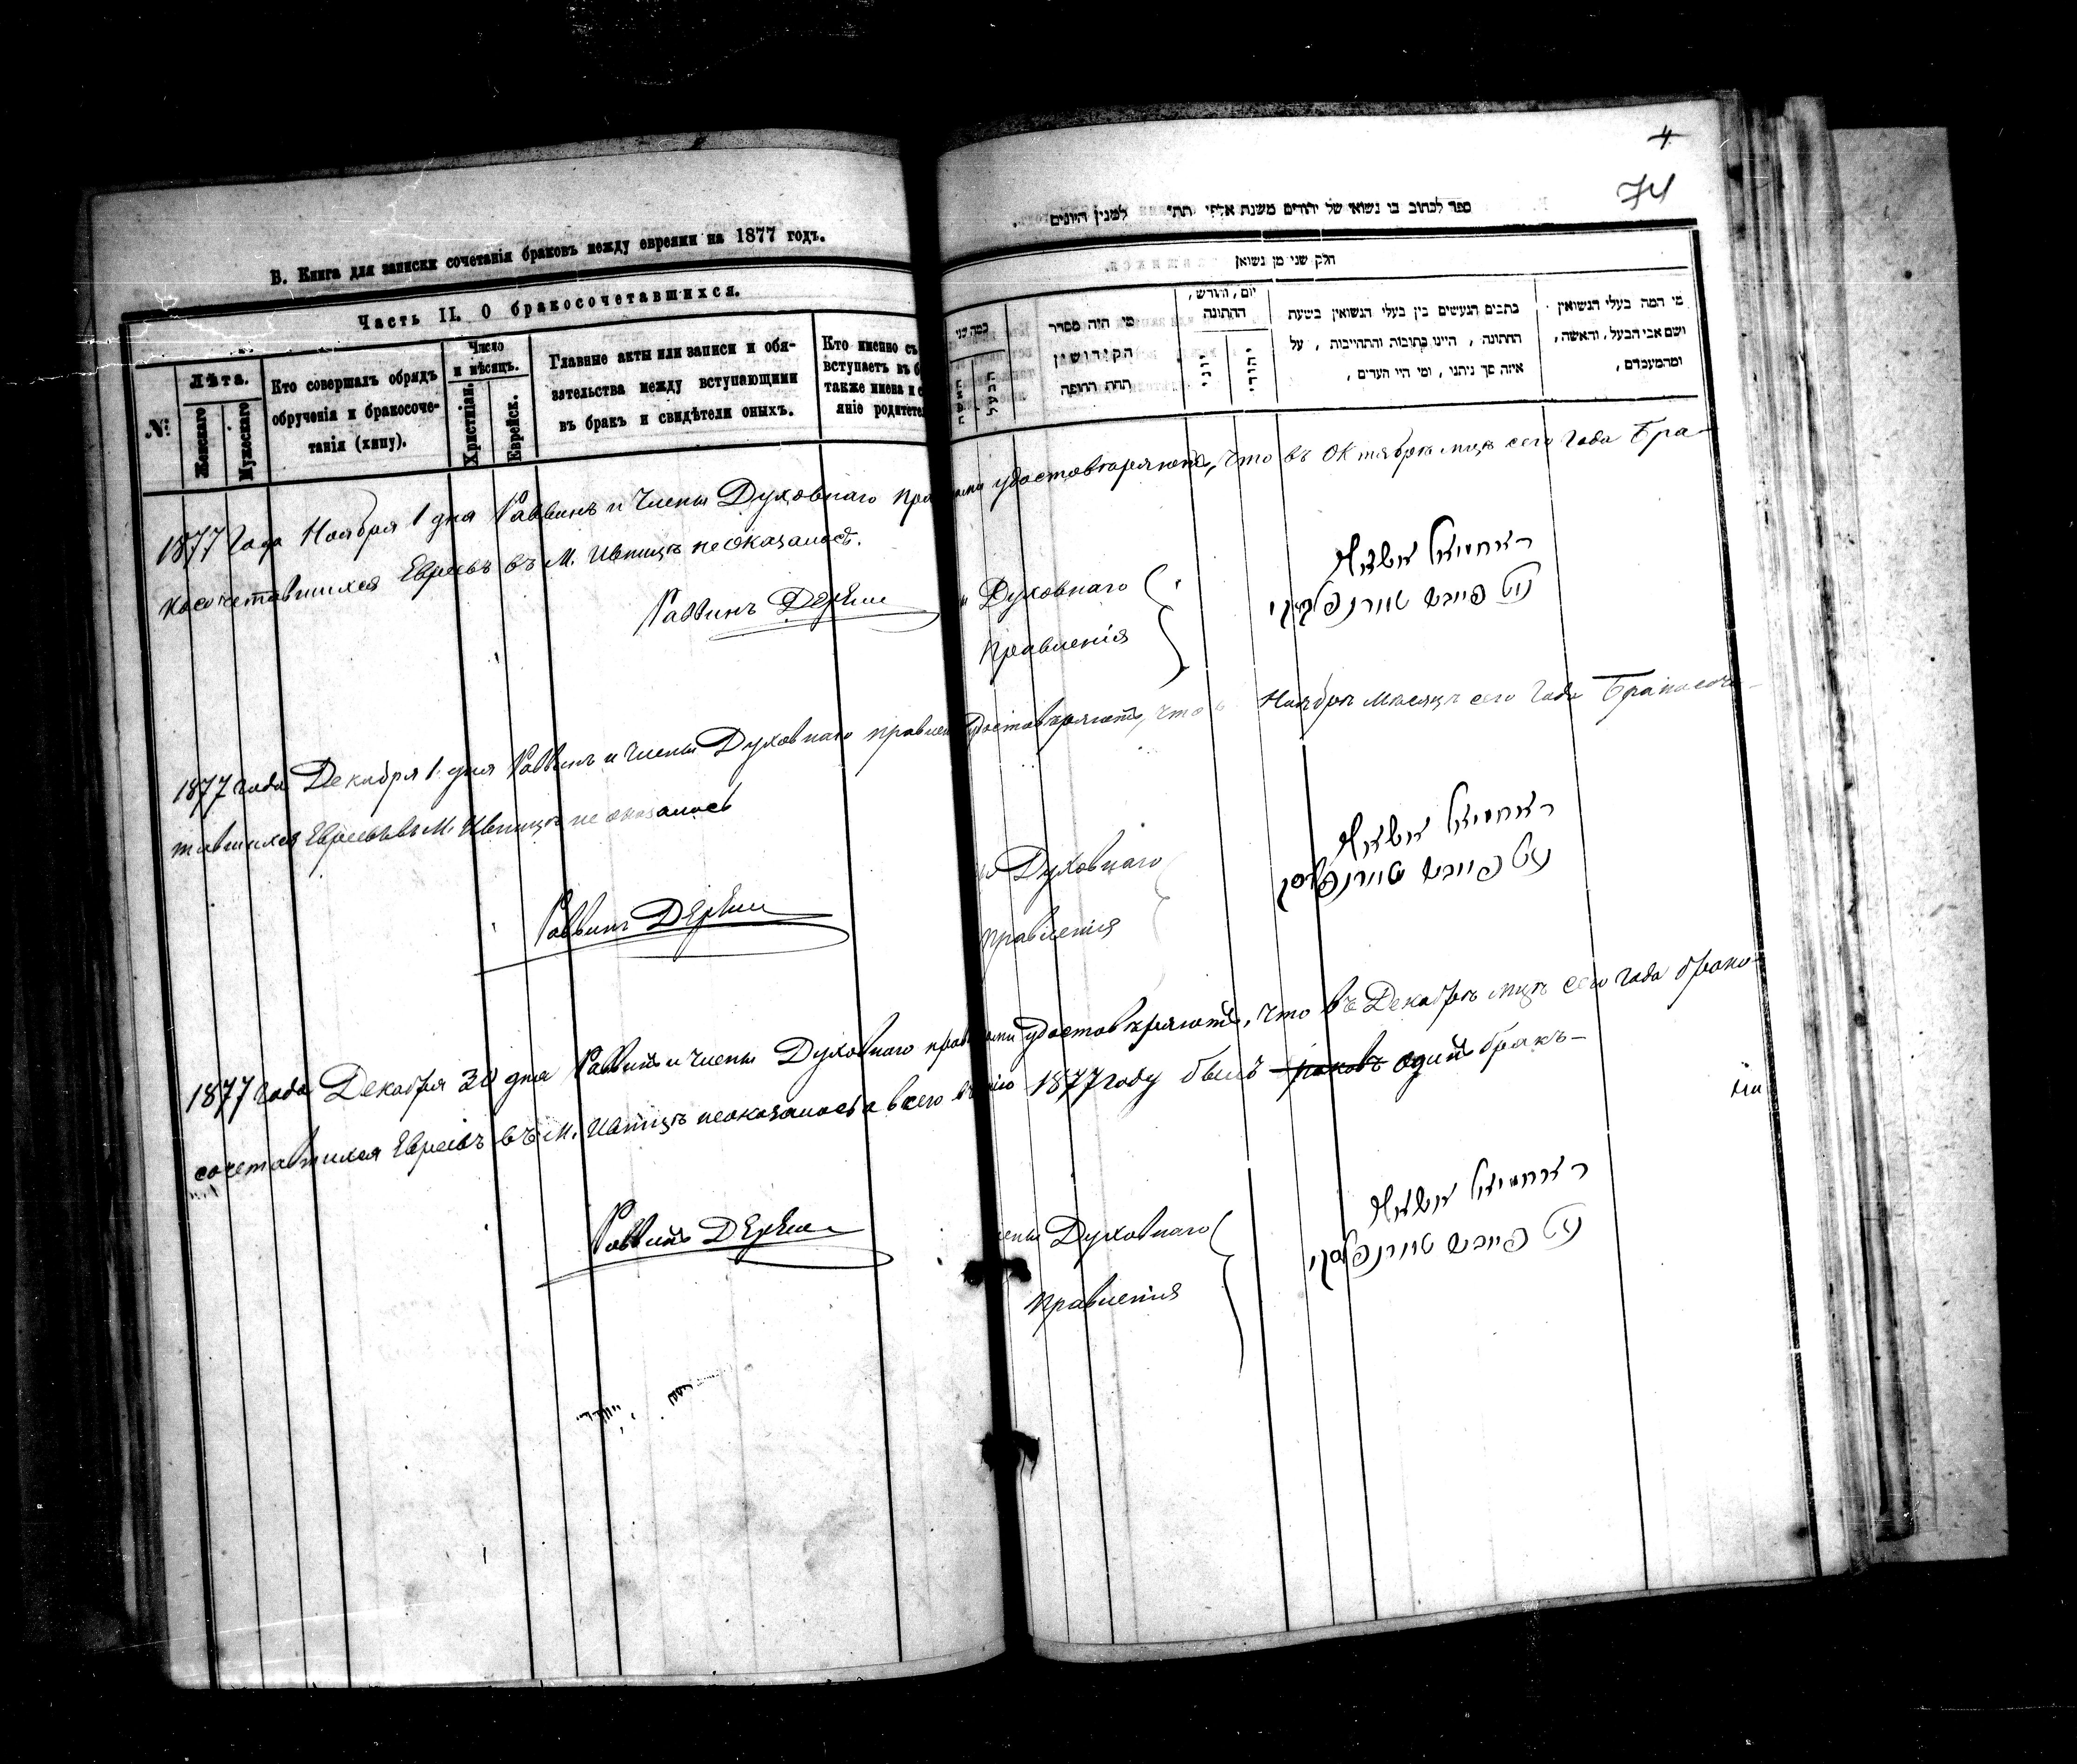 4
74
В. Книга для записки сочетанія браковъ между евреями на 1877 годъ.
Часть II. О бракосочетавшихся.
№
Лѣта.
Женскаго
Мужескаго
Кто совершалъ обрядъ
обрученія и бракосоче-
танія (хипу).
Число
и мѣсяцъ.
Христіан.
Еврейск.
Главные акты или записи и обя-
зательства между вступающими
въ бракъ и свидѣтели оныхъ.
Кто именно съ
вступаетъ въ б
также имена и с
яніе родител
ספר לכתוב בו נשואי של יהודים משנת אלפי תת״ למנין היונים
חלק שני מן נשואין
כמה שני
האשה
הבעל
מי היה מסדר
הקידושין
תחת החופה
יום, וחודש,
החתונה
יוני
יהודי
כתבים הנעשים בין בעלי הנשואין בשעת
החתונה, היינו כתובות והתחייבות, על
איזה סך ניתנו, ומי היו העדים,
מי המה בעלי הנשואין
ושם אבי הבעל, והאשה,
ומהמעמדם,
1877 Года Ноября 1 дня Раввинъ и Члены Духовнаго удостовѣряютъ, что въ Октябрѣ мцѣ сего Года Бра-
косочетавшихся Евреевъ въ М. Ивницѣ не оказалось.
Раввинъ
Духовнаго
Правленія
1877 года Декабря 1 дня Раввинъ и Члены Духовнаго удостовѣряютъ, что Ноябрѣ мѣсяцѣ сего Года Бракосоче-
тавшихся Евреевъ въ М. Ивницѣ не оказалось
Раввинъ
Духовнаго
Правленія
1877 года Декабря 30 дня Раввинъ и Члены Духовнаго удостовѣряютъ, что въ Декабрѣ мцѣ сего года брако-
сочетавшихся Евреевъ въ М. Ивницѣ неоказалось а всего 1877 году былъ одинъ бракъ-
Раввинъ
Духовнаго
Правленія